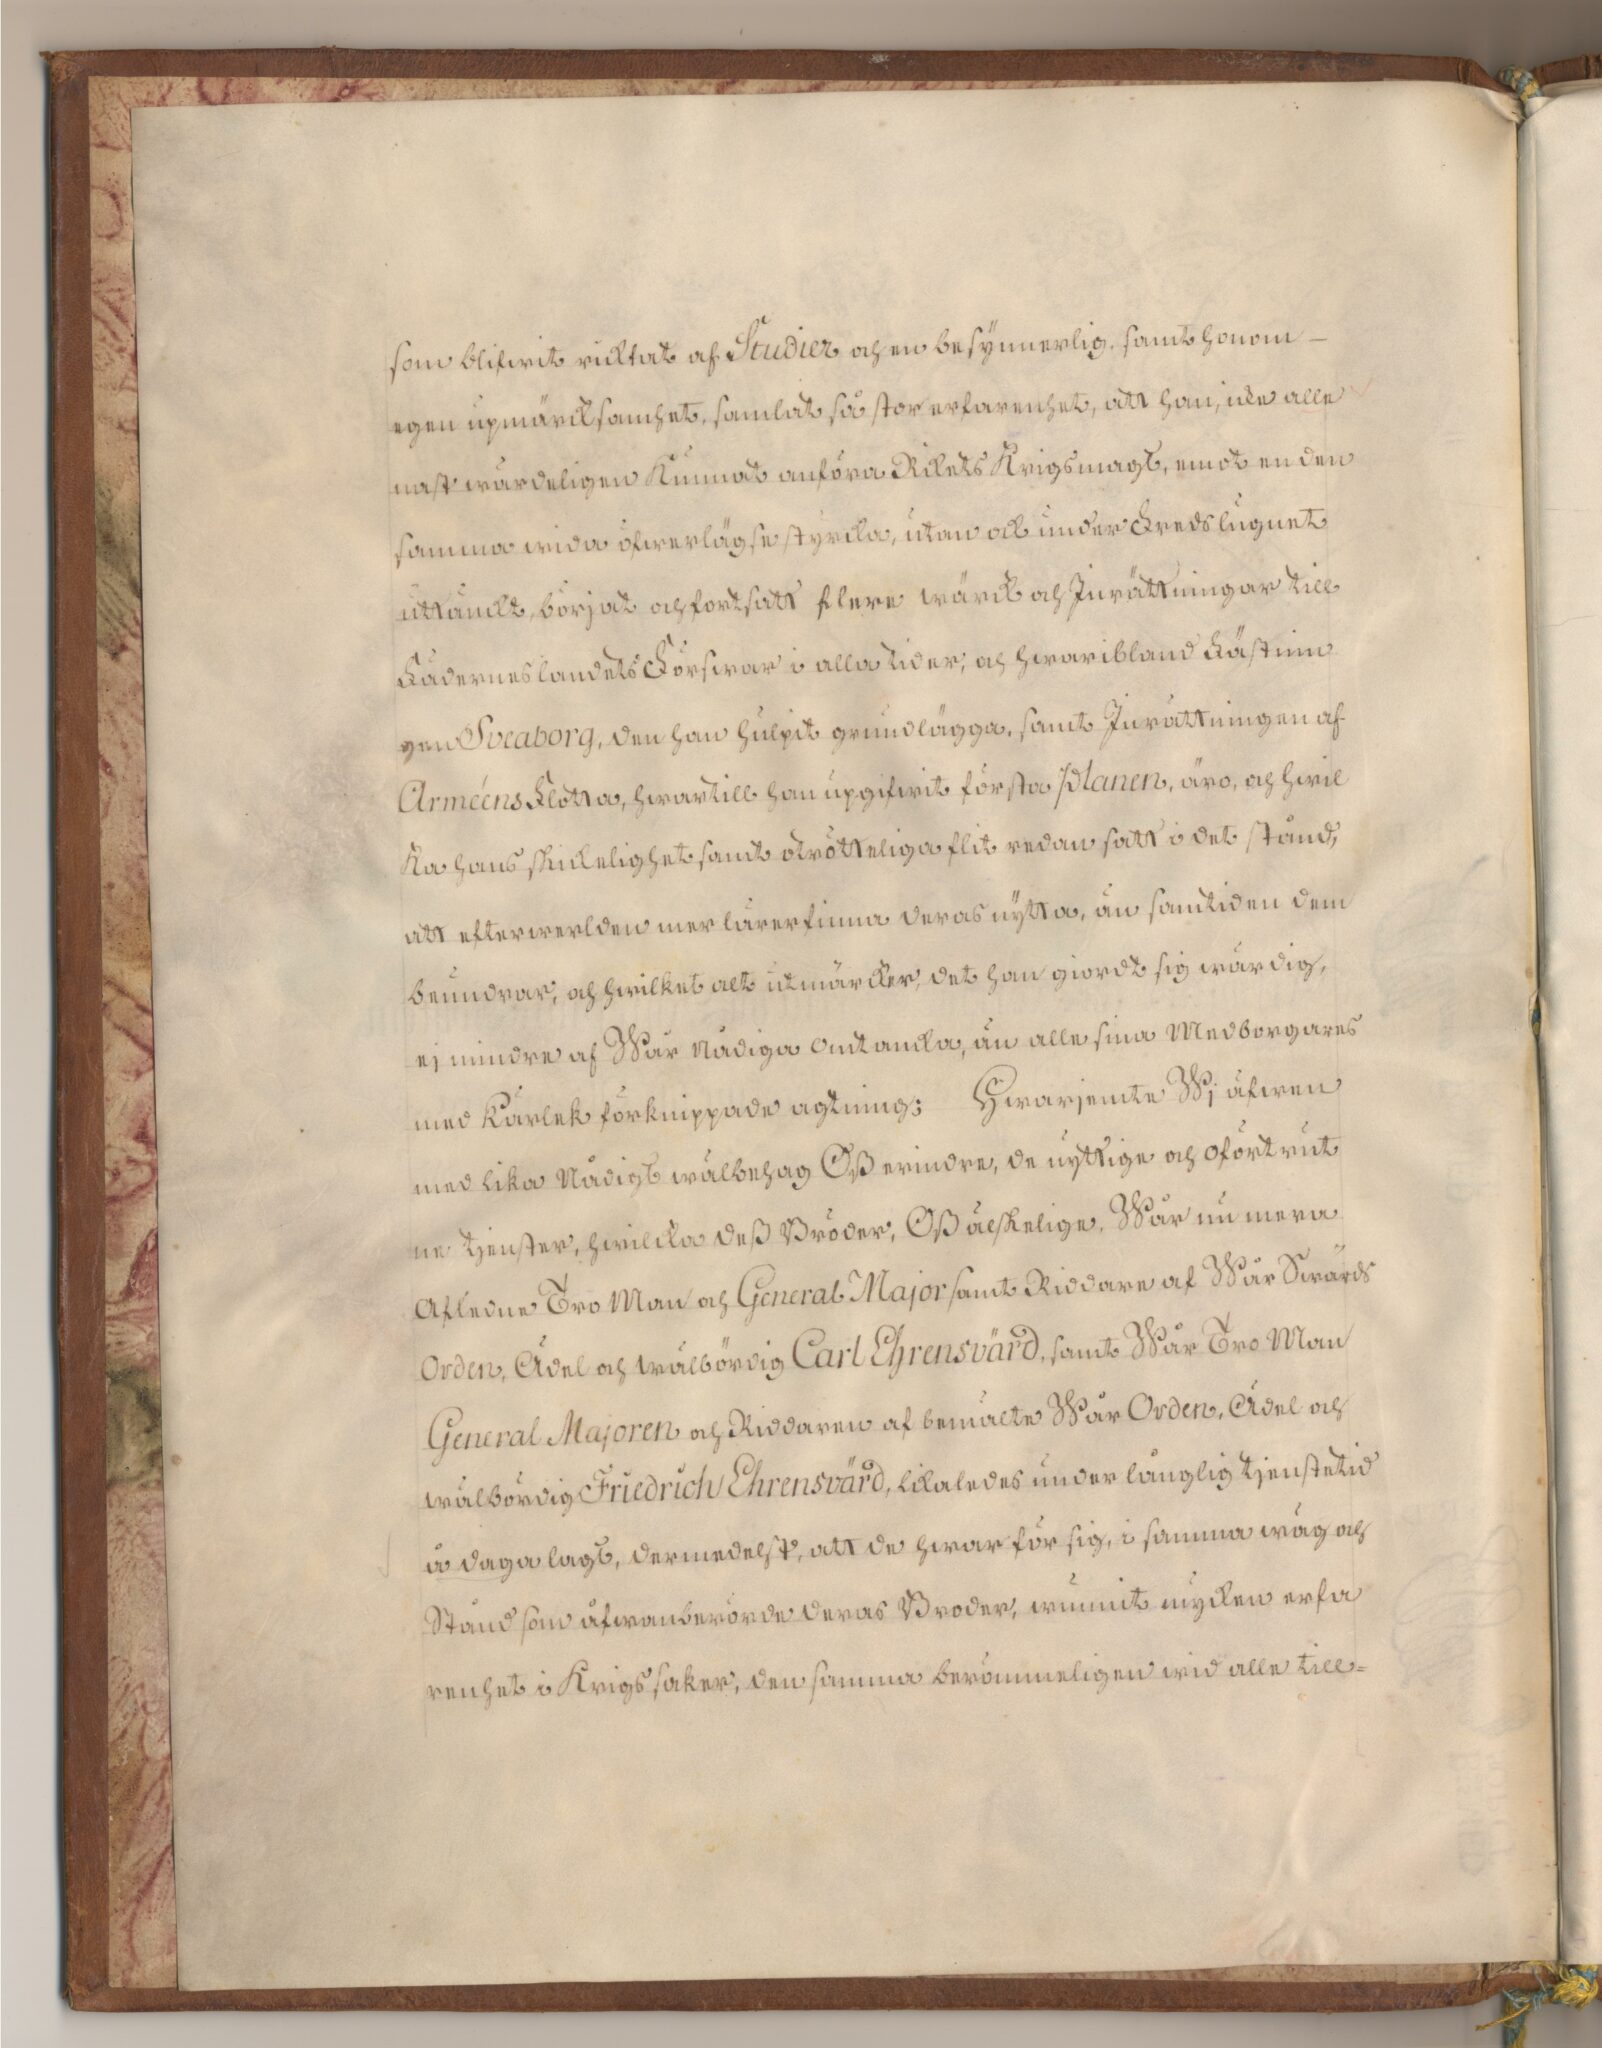 som blifwit ricktat af Studier och en besynnerlig, samt honom –
egen upmärcksamhet, samlat så stor erfarenhet, att han, icke alle
nast wärdeligen kunnat anföra Rikets Krigsmagt, emot en den
samma wida öfwerlägse styrcka, utan ock under Fredslugnet
uttänckt, börjat och fortsatt flere wärck och Inrättningar till
Fäderneslandets Förswar i alla tider, och hwaribland Fästnin
gen Sveaborg, den han hulpit grundlägga, samt Inrättningen af
Arméens Flotta, hwartill han upgifwit första Planen, äro, och hwil
ka hans skickelighet samt otrötteliga flit redan satt i det stånd,
att efterwerlden mer lärer finna deras nytta, än samtiden dem
beundrar, och hwilket alt utmärcker, det han giordt sig wärdig,
ej mindre af Wår Nådiga omtancka, än alle sina Medborgares
med Kärlek förknippade agtning: Hwarjemte Wj äfwen
med lika Nådigt wälbehag Oß erindre, de nyttige och oförtrut
ne tjenster, hwilcka deß Bröder, Oß älskelige, Wår nu mera
Afledne Tro Man och General Major samt Riddare af Wår Swärds
Orden, Ädel och wälbördig Carl Ehrensvärd, samt Wår Tro Man
General Majoren och Riddaren af bemälte Wår Orden, Ädel och
wälbördig Friedrich Ehrensvärd, likaledes under långlig tjenstetid
å daga lagt, dermedelst, att de hwar för sig, i samma wäg och
Stånd som äfwanberörde deras Broder, wunnit mycken erfa
renhet i Krigssaker, den samma berömmeligen wid alle till=